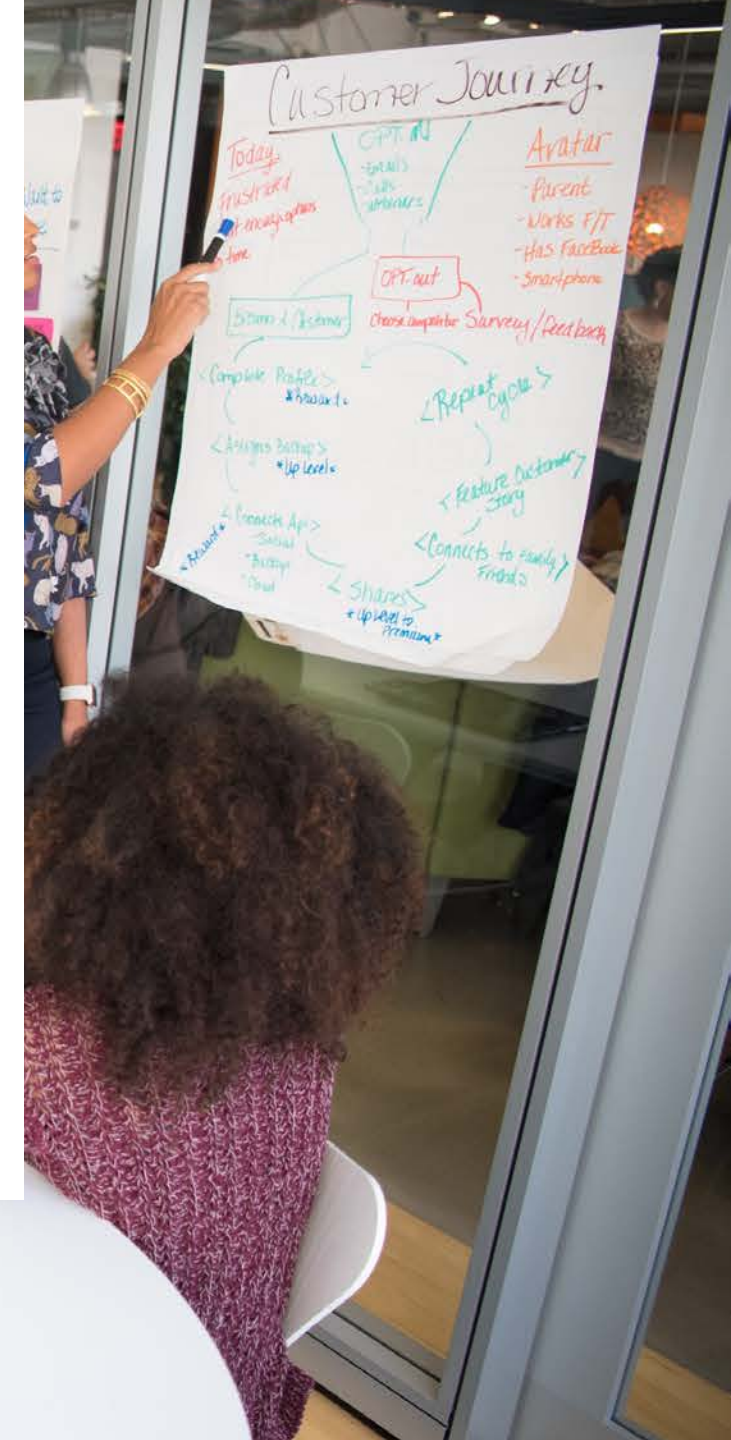 Customer Journey.
Today
Frustrated
time
OPT-IN
- Emails
- Calls
Avatar
- Parent
- Works F/T
- Has FaceBook
- Smartphone
OPT-out
choose competitor Survey/feedback
Customer
<Complete Profile>
*Reward*
<Assigns Backup>
*Up Level*
<Connects App>
- Social
- Backup
- Cloud
*Reward*
<Shares>
*Up Level to
Premium*
<Connects to family>
Friends
<Feature Customer>
Story
<Repeat
cycle>